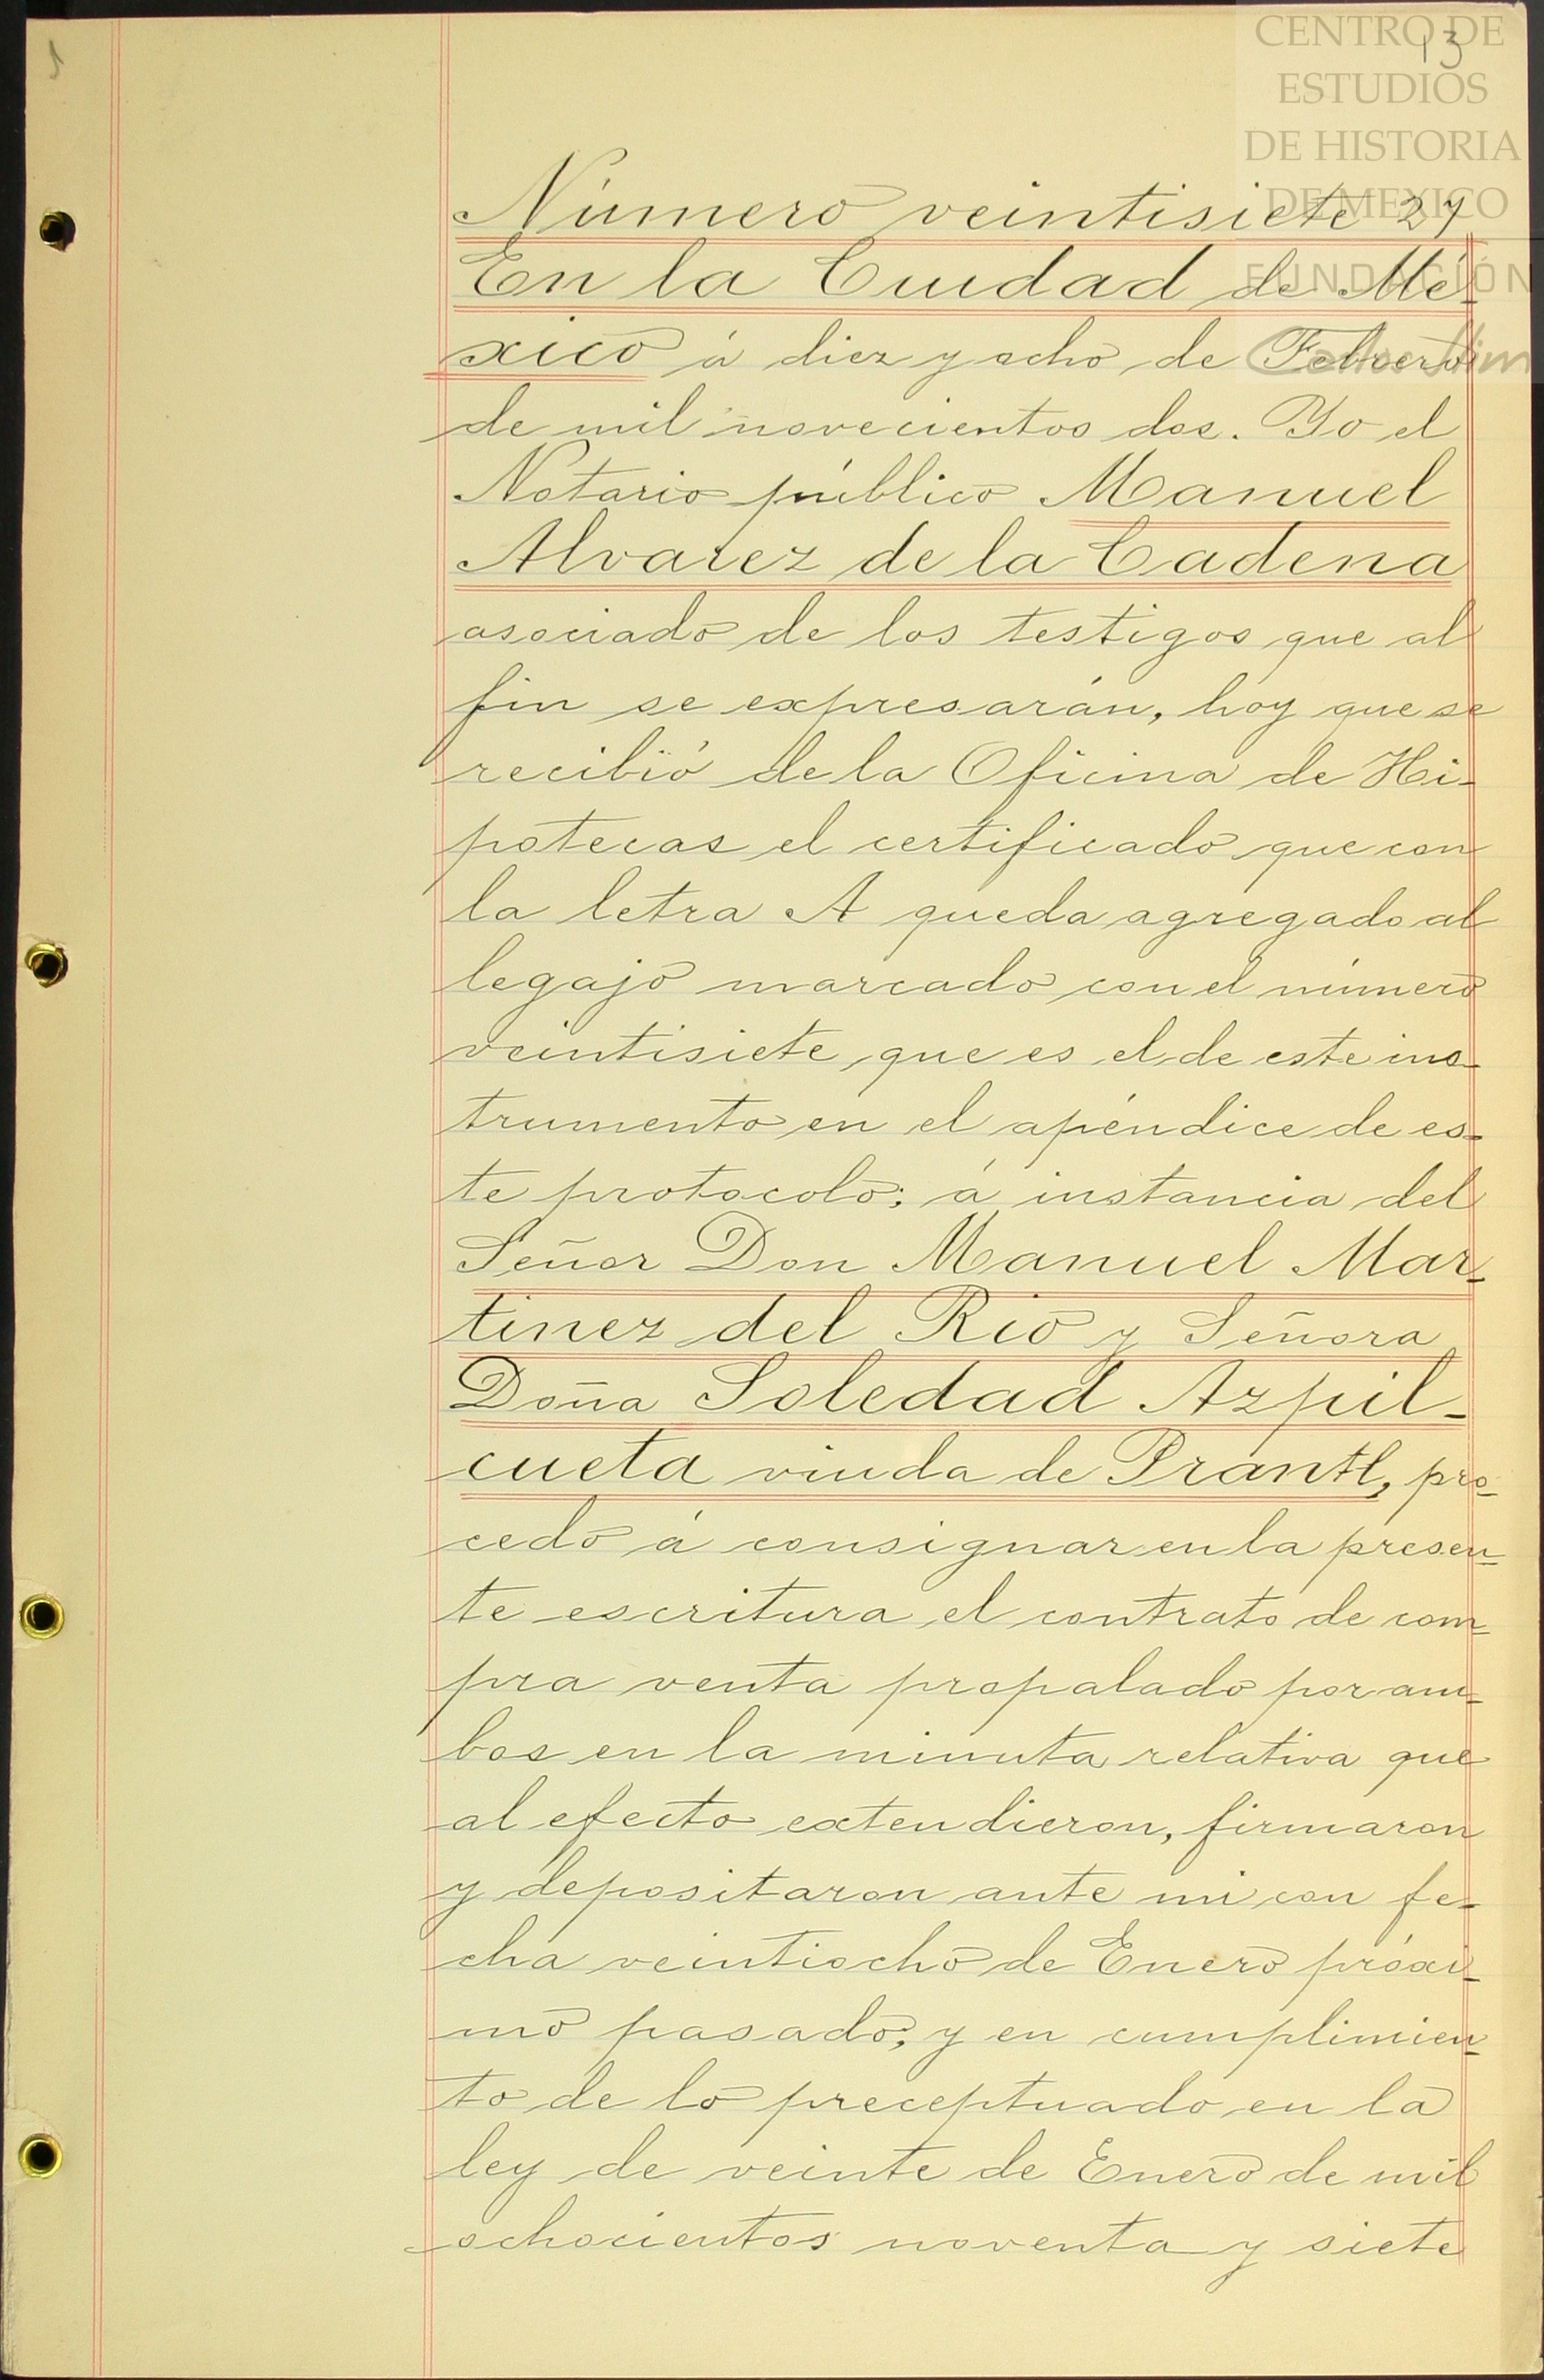 CENTRO DE
ESTUDIOS
DE HISTORIA
DE MEXICO
FUNDACIÓN
Carlos Slim
13
Número veintisiete 27
En la Ciudad de Mé-
xico á diez y ocho de Febrero
de mil novecientos dos. Yo el
Notario público Manuel
Alvarez de la Cadena
asociado de los testigos que al
fin se expresarán, hoy que se
recibió de la Oficina de Hi-
potecas el certificado que con
la letra A queda agregado al
legajo marcado con el número
veintisiete que es el de este ins-
trumento en el apéndice de es-
te protocolo; á instancia del
Señor Don Manuel Mar-
tinez del Rio y Señora
Doña Soledad Azpil-
cueta viuda de Prantl, pro-
cedo á consignar en la presen-
te escritura el contrato de com-
pra venta propalado por am-
bos en la minuta relativa que
al efecto extendieron, firmaron
y depositaron ante mi con fe-
cha veintiocho de Enero próxi-
mo pasado; y en cumplimien-
to de lo preceptuado en la
ley de veinte de Enero de mil
ochocientos noventa y siete